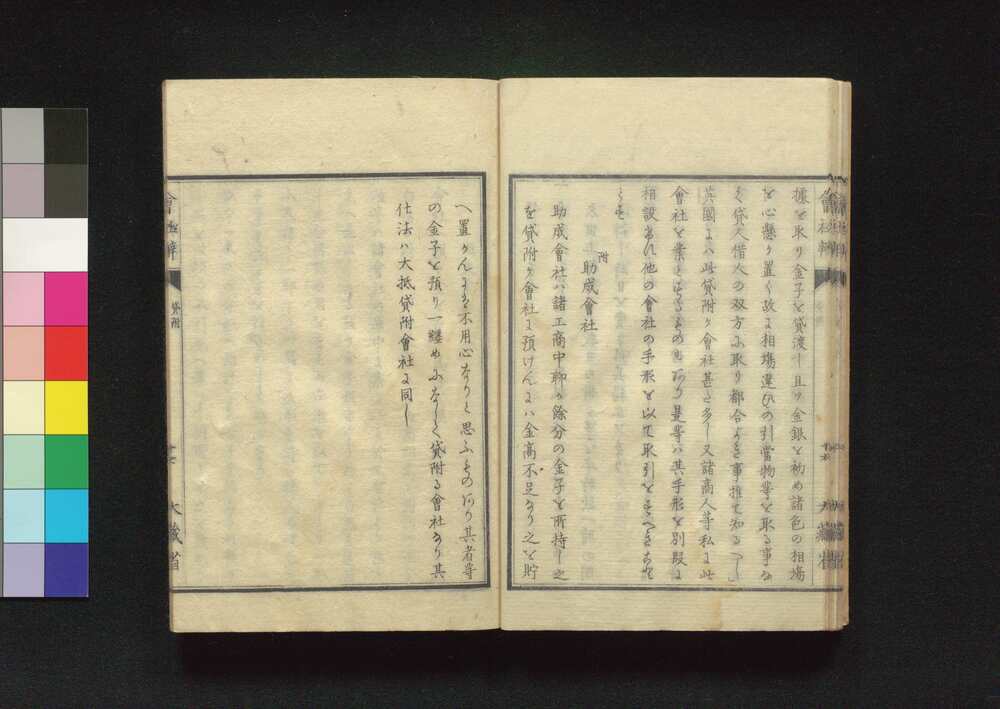 據を取り金子を貸渡し且ツ金銀を初め諸色の相場
を心懸け置く故に相場違ひの引當物等を取る事な
く貸人借人の双方に取り都合よき事推て知るべし
英國にハ此貸附ケ會社甚た多し又諸商人等私に此
會社を業とするものもあり是等ハ其手形を別段に
相設けれ他の會社の手形を以て取引をすへきこと
とす
附
助成會社
助成會社ハ諸工商中聊か餘分の金子を所持し之
を貸附ケ會社に預けんにハ金高不足なり之を貯
へ置かんにも不用心なりと思ふものあり其者等
の金子を預り一纏めになして貸附る會社なり其
仕法ハ大抵貸附會社に同し
會社辨
貸附
十七
大藏省